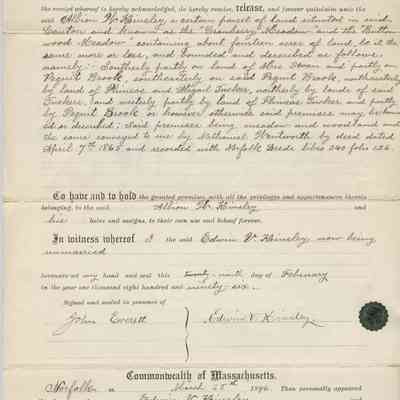 the receipt whereof is hereby acknowledged, do hereby remise, release, and forever quitclaim unto the
said Albion W. Kinsley, a certain parcel of land situated in said
Canton and known as the "Cranberry Meadow and the Button
wood Meadow" containing about fourteen acres of land, be the
same more or less, and bounded and described as follows,
namely: Southerly partly on land of Mrs Swan and partly on
Pequit Brook, southeasterly on said Pequit Brook, northeasterly
by land of Phineas and Abigail Tucker, northerly by lands of said
Tuckers, and westerly partly by land of Phineas Tucker and partly
by Pequit Brook or however otherwise said premises may be bound
ed or described; said premises being meadow and woodland and
the same conveyed to me by Nathaniel Wentworth by deed dated
April 7th and recorded with Norfolk Deeds libro 340 folio 126.
To have and to hold the granted premises, with all the privileges and appurtenances thereto
belonging, to the said Albion W. Kinsley and
his heirs and assigns, to their own use and behoof forever.
In witness whereof I the said Edwin V. Kinsley, now being
unmarried
hereunto set my hand and seal this twenty ninth day of February
in the year one thousand eight hundred and ninety six.
Signed and sealed in presence of
John Everett
Edwin V. Kinsley.
Commonwealth of Massachusetts.
Norfolk ss March 25th 1896. Then personally appeared
Edwin V. Kinsley